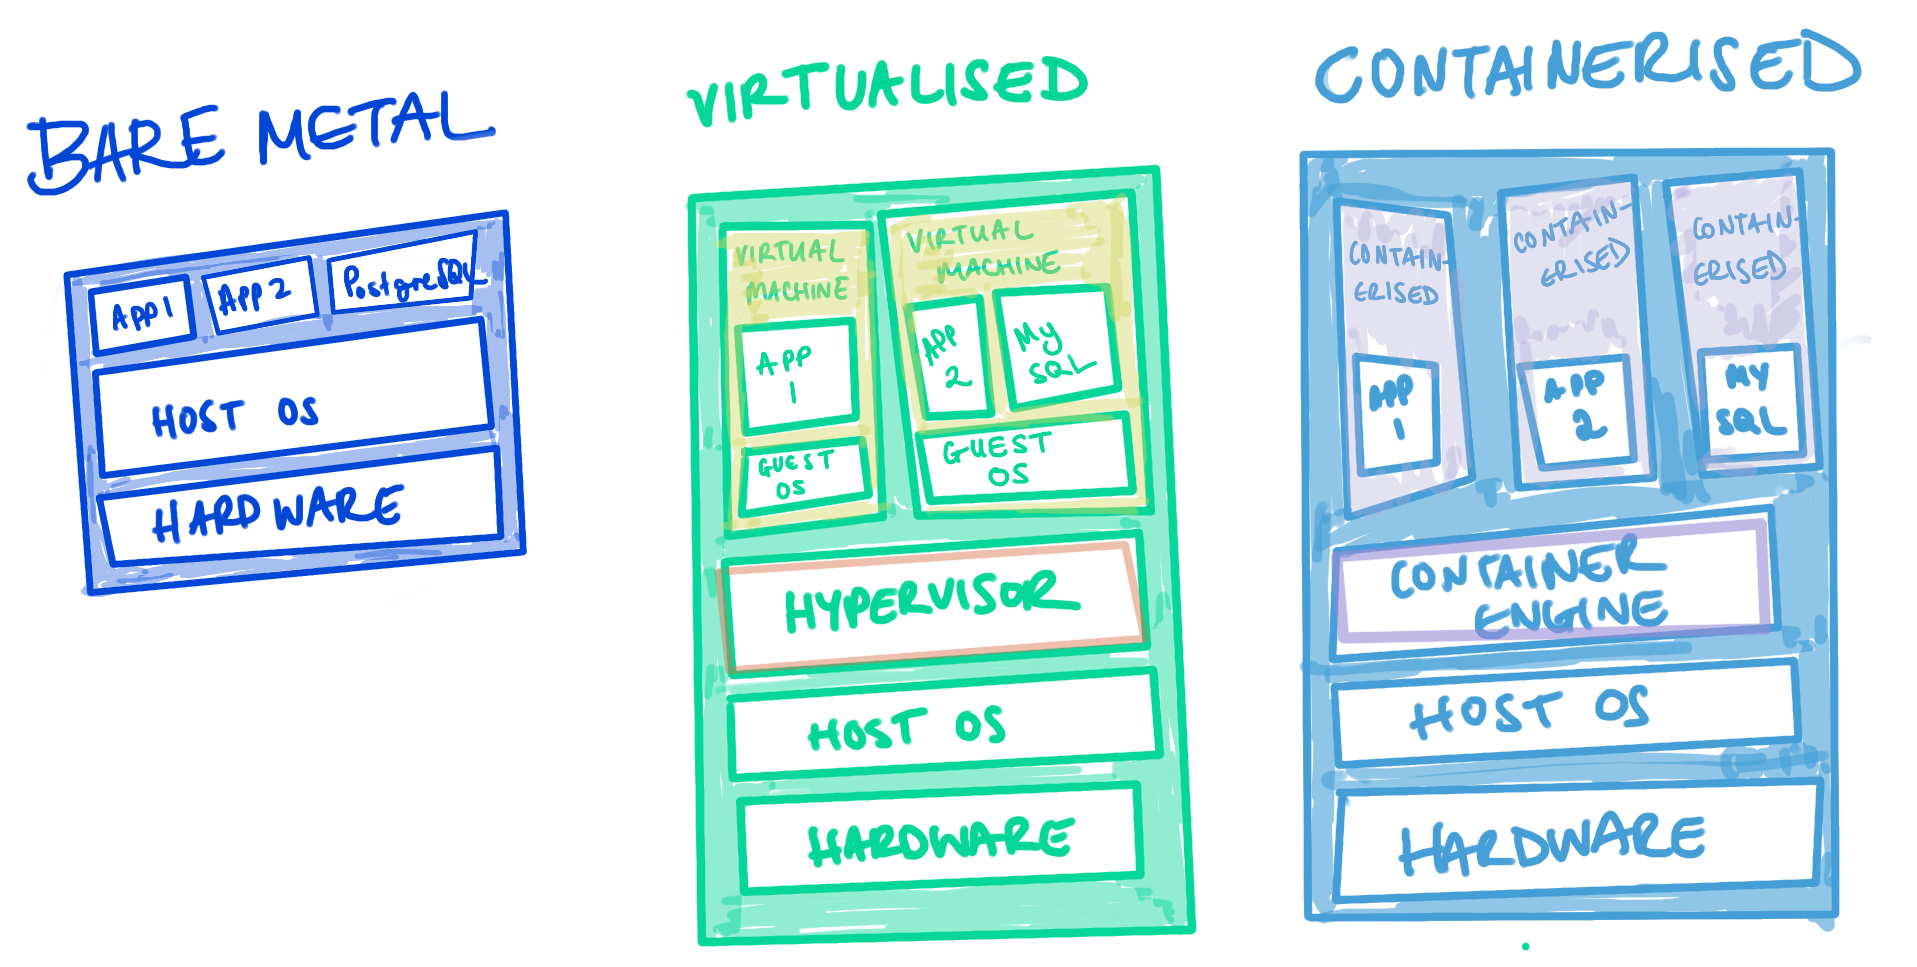 BARE METAL
APP 1
APP 2
PostgreSQL
HOST OS
HARDWARE
VIRTUALISED
VIRTUAL
MACHINE
APP
1
GUEST
OS
VIRTUAL
MACHINE
APP
2
MY
SQL
GUEST
OS
HYPERVISOR
HOST OS
HARDWARE
CONTAINERISED
CONTAIN-
ERISED
APP
1
CONTAIN-
ERISED
APP
2
CONTAIN-
ERISED
MY
SQL
CONTAINER
ENGINE
HOST OS
HARDWARE